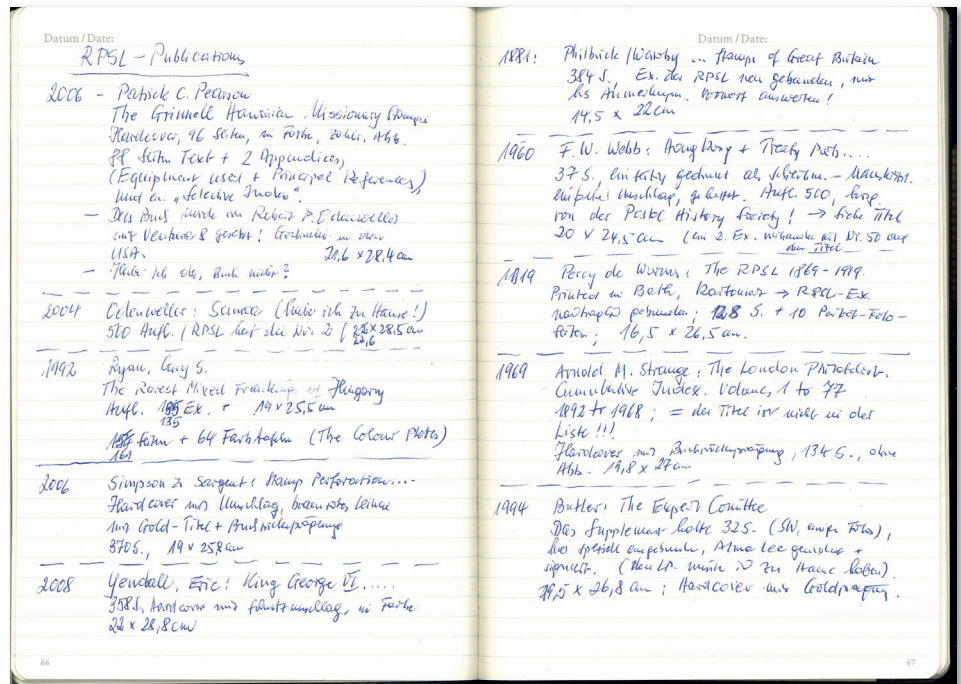 Datum / Date:
RPSL – Publications
2006 – Patrick C. Pearson
The Grinnell Hawaiian Missionary Stamps
Hardcover, 96 Seiten, in Farbe, zahlr. Abb.
88 Seiten Text + 2 Appendices,
(Equipment used + Principal References)
und ein „Selective Index".
– Das Buch wurde von Robert P. Odenweller
mit Ventura 8 gesetzt! Gedruckt in den
USA. 21,6 x 28,4 cm
– Habe ich das Buch nicht?
2004 Odenweller: Samoa (habe ich zu Hause!)
500 Aufl. / RPSL hat die Nr. 2 ( x 28,5 cm
22,6
1992 Ryan, Gary S.
The Rarest Mixed Frankings of Hungary
Aufl. Ex. + 19 x 25,5 cm
135
Seiten + 64 Farbtafeln (The Colour Plates)
161
2006 Simpson & Sargent: Stamp Perforation....
Hardcover mit Umschlag, braunrotes Leinen
mit Gold-Titel + Buchrückenprägung
370 S., 19 x 25,8 cm
2008 Yendall, Eric: King George VI.....
358 S., Hardcover mit Schutzumschlag, in Farbe
22 x 28,8 cm
66
Datum / Date:
1881: Philbrick / Westoby ... Stamps of Great Britain
384 S., Ex. der RPSL neu gebunden, mit
hs Anmerkungen. Vorwort auswerten!
14,5 x 22 cm
1960 F.W. Webb: Hong Kong + Treaty Ports....
37 S. einseitig gedruckt als Schreibm.-Manuskript.
einfacher Umschlag, geheftet. Aufl. 500, hrsg.
von der Postal History Society! → siehe Titel
20 x 24,5 cm (ein 2. Ex. vorhanden mit Nr. 50 auf
dem Titel
1919 Percy de Worms: The RPSL 1869–1919.
Printed in Bath, kartoniert → RPSL-Ex.
nachträglich gebunden; 128 S. + 10 Porträt-Foto-
Seiten; 16,5 x 26,5 cm.
1969 Arnold M. Strange: The London Philatelist.
Cumulative Index. Volumes 1 to 77
1892 to 1968; = der Titel ist nicht in der
Liste!!!
Hardcover mit Buchrückenprägung, 134 S., ohne
Abb. 19,8 x 27 cm
1994 Butler: The Expert Comittee
Das Supplement hatte 32 S. (S/W, einige Fotos),
hs speziell eingebunden, Alma Lee gewidmet +
signiert. (Den LP- müsste ich zu Hause haben).
19,5 x 26,8 cm; Hardcover mit Goldprägung.
67